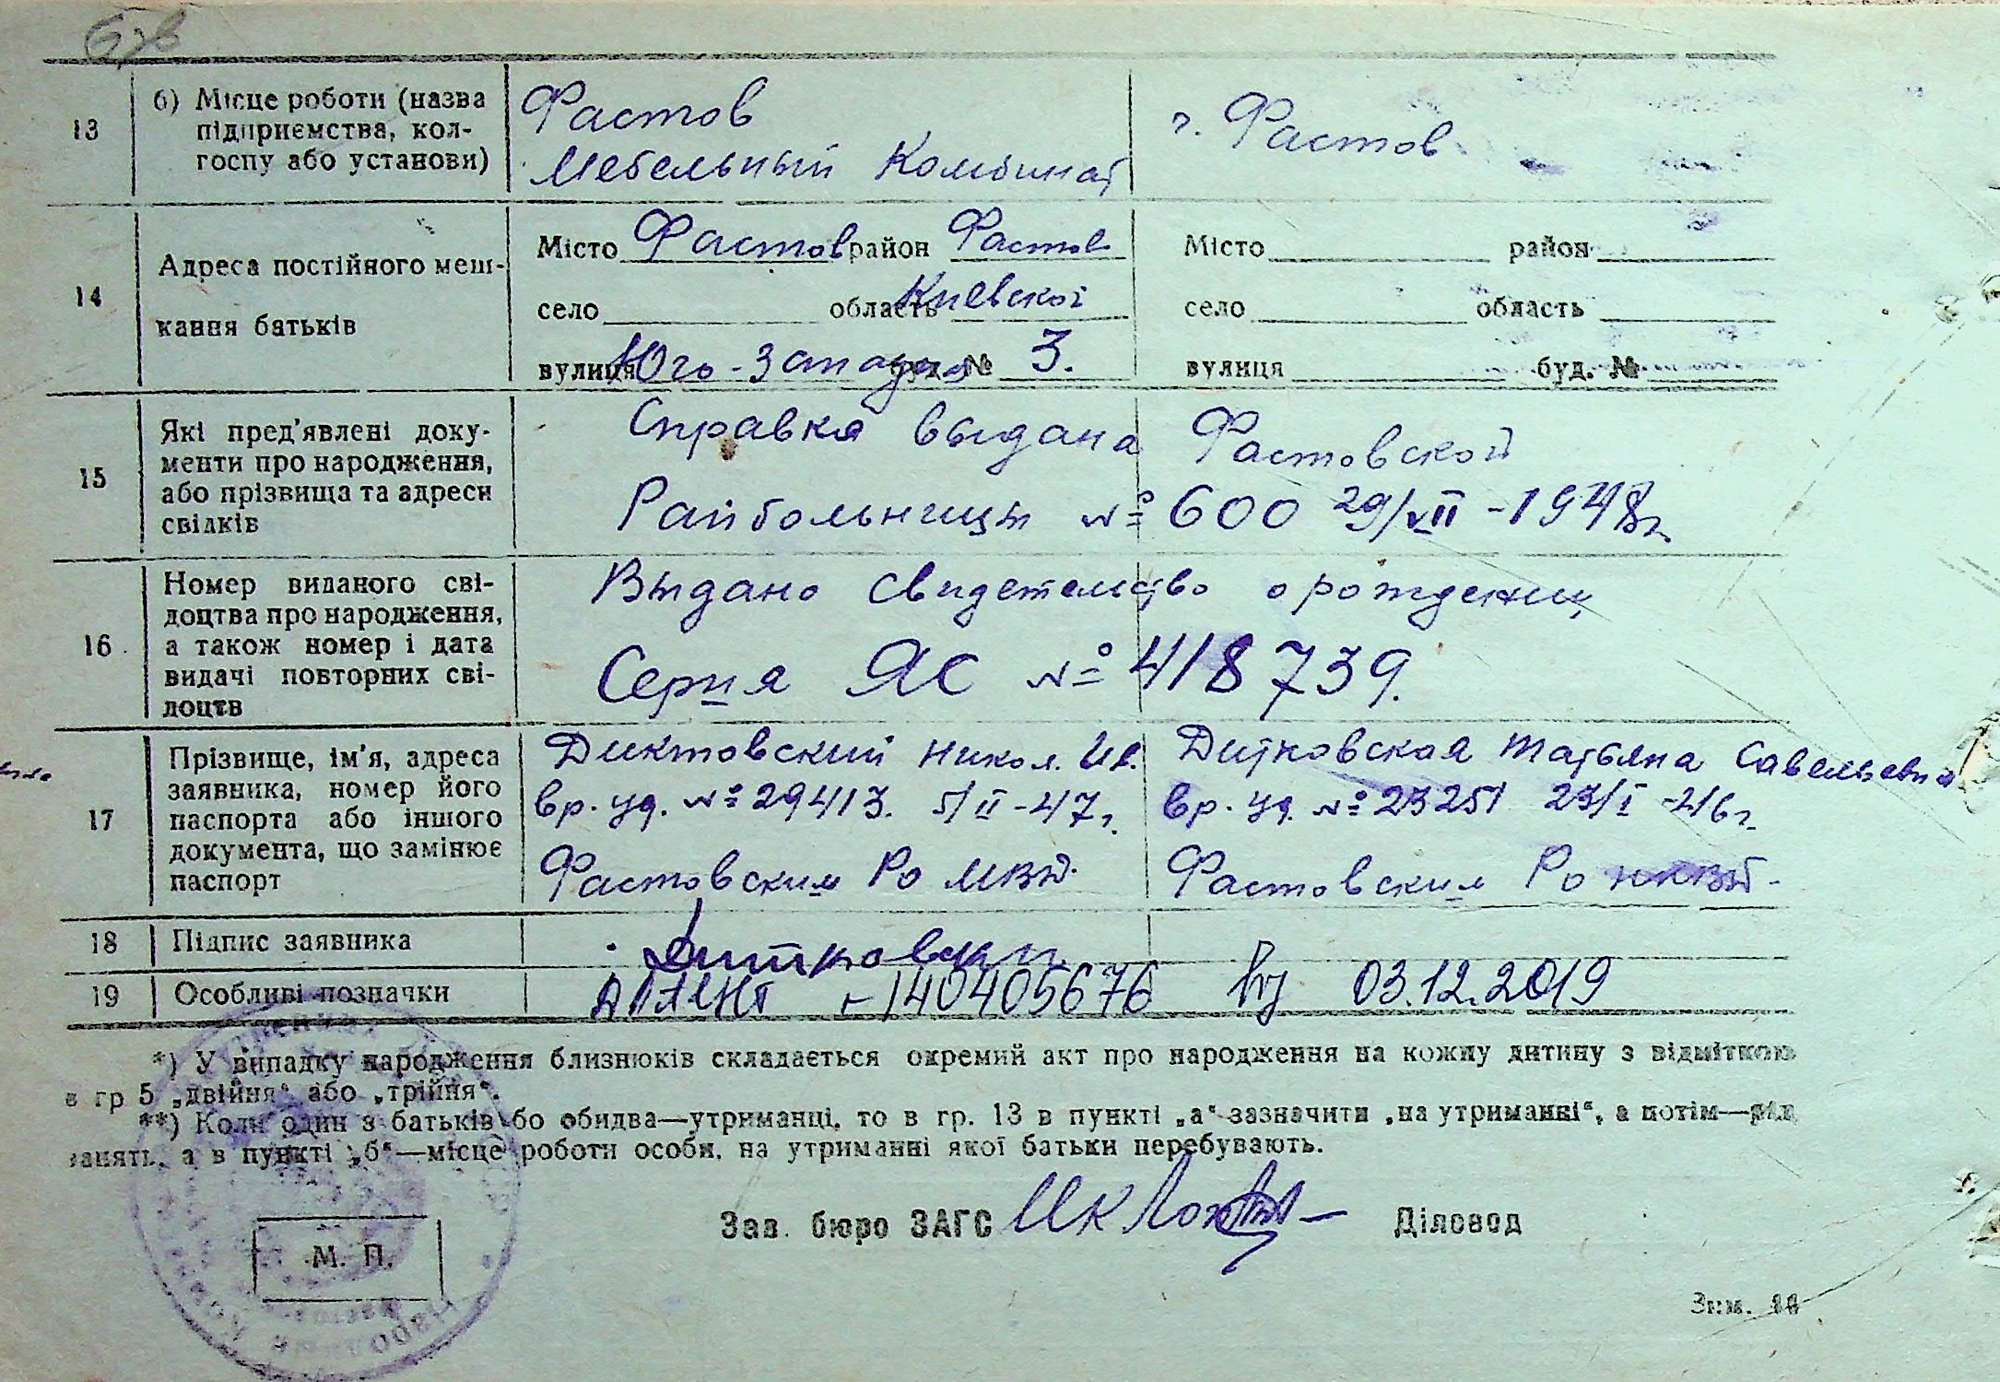 13
б) Місце роботи (назва
підприємства, кол-
госпу або установи)
Фастов
Мебельный Комбинат
г. Фастов
14
Адреса постійного меш-
кання батьків
Місто Фастов район Фастов
село область Киевской
вулиця Юго-Западная буд. № 3.
Місто район
село область
вулиця буд. №
15
Які пред'явлені доку-
менти про народження,
або прізвища та адреси
свідків
Справка выдана Фастовской
Райбольницы № 600 29/VII-1948г.
16
Номер виданого сві-
доцтва про народження,
а також номер і дата
видачі повторних сві-
доцтв
Выдано свидетельство о рождении
Серия ЯС № 418739.
17
Прізвище, ім'я, адреса
заявника, номер його
паспорта або іншого
документа, що замінює
паспорт
Диктовский Никол. Ив.
вр. уд. № 29413. 5/II-47г.
Фастовским Ро МВД.
Дитковская Татьяна Савельевна
вр. уд. № 23251 23/I-46г.
Фастовским Ро НКВД.
18
Підпис заявника
Дитковский
19
Особливі позначки
-140405676 від 03.12.2019
*) У випадку народження близнюків складається окремий акт про народження на кожну дитину з відміткою
в гр 5 „двійня“ або „трійня“.
**) Коли один з батьків бо обидва—утриманці, то в гр. 13 в пункті „а“ зазначити „на утриманні“, а потім—рід
занять, а в пункті „б“—місце роботи особи, на утриманні якої батьки перебувають.
Зав. бюро ЗАГС
Діловод
М. П.
Зим.